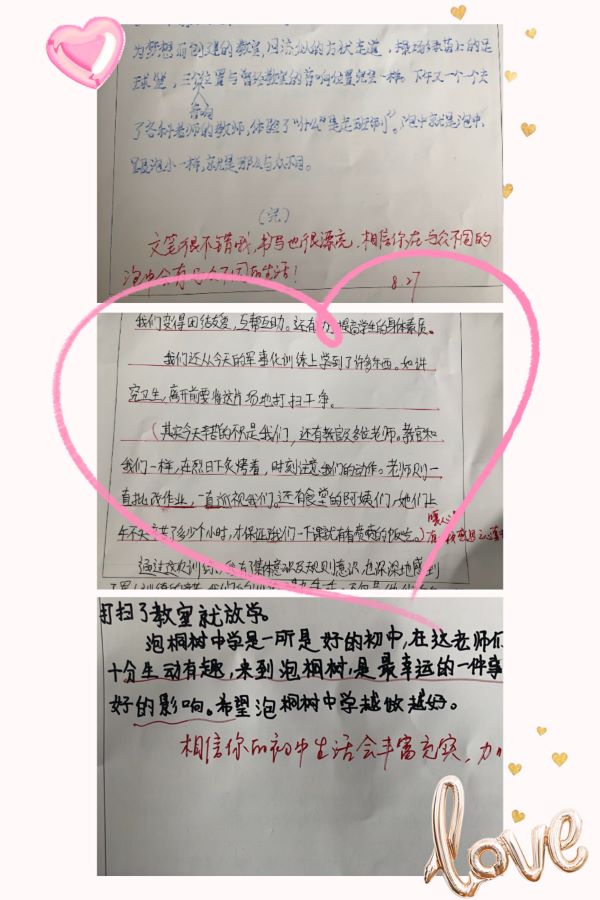 为梦想而创建的教室,回流似的方状走道,操场绿茵上的足
球健,三个位置与
音响
了各科老师的教师,体验了“什么”是走班制”。泡中就是泡中,
跟泡小一样,就是那么与众不同。
文笔很不错哦,书写也很漂亮,相信你在与众不同的
泡中会有与众不同的生活!
8.27
我们变得团结友爱,互帮互助。还有
提高学生的身体素质。
我们还从今天的军事化训练上学到了许多东西。如讲
究卫生,离开前要将这片场地打扫干净。
(其实今天辛苦的不只是我们,还有教官及各位老师。教官和
我们一样,在烈日下炙烤着,时刻注意我们的动作。老师则一
直批改作业,一直巡视我们。还有食堂的阿姨们,她们上
多少个小时,才保证我们一下课就有香喷喷的饭吃。)
暖心
通过这次训练,
集体意识及规则意识,也深深地感到
打扫了教室就放学。
泡桐树中学是一所是好的初中,在这老师们
十分生动有趣,来到泡桐树,是最幸运的一件事
好的影响。希望泡桐树中学越做越好。
相信你的初中生活会丰富充实,加
love